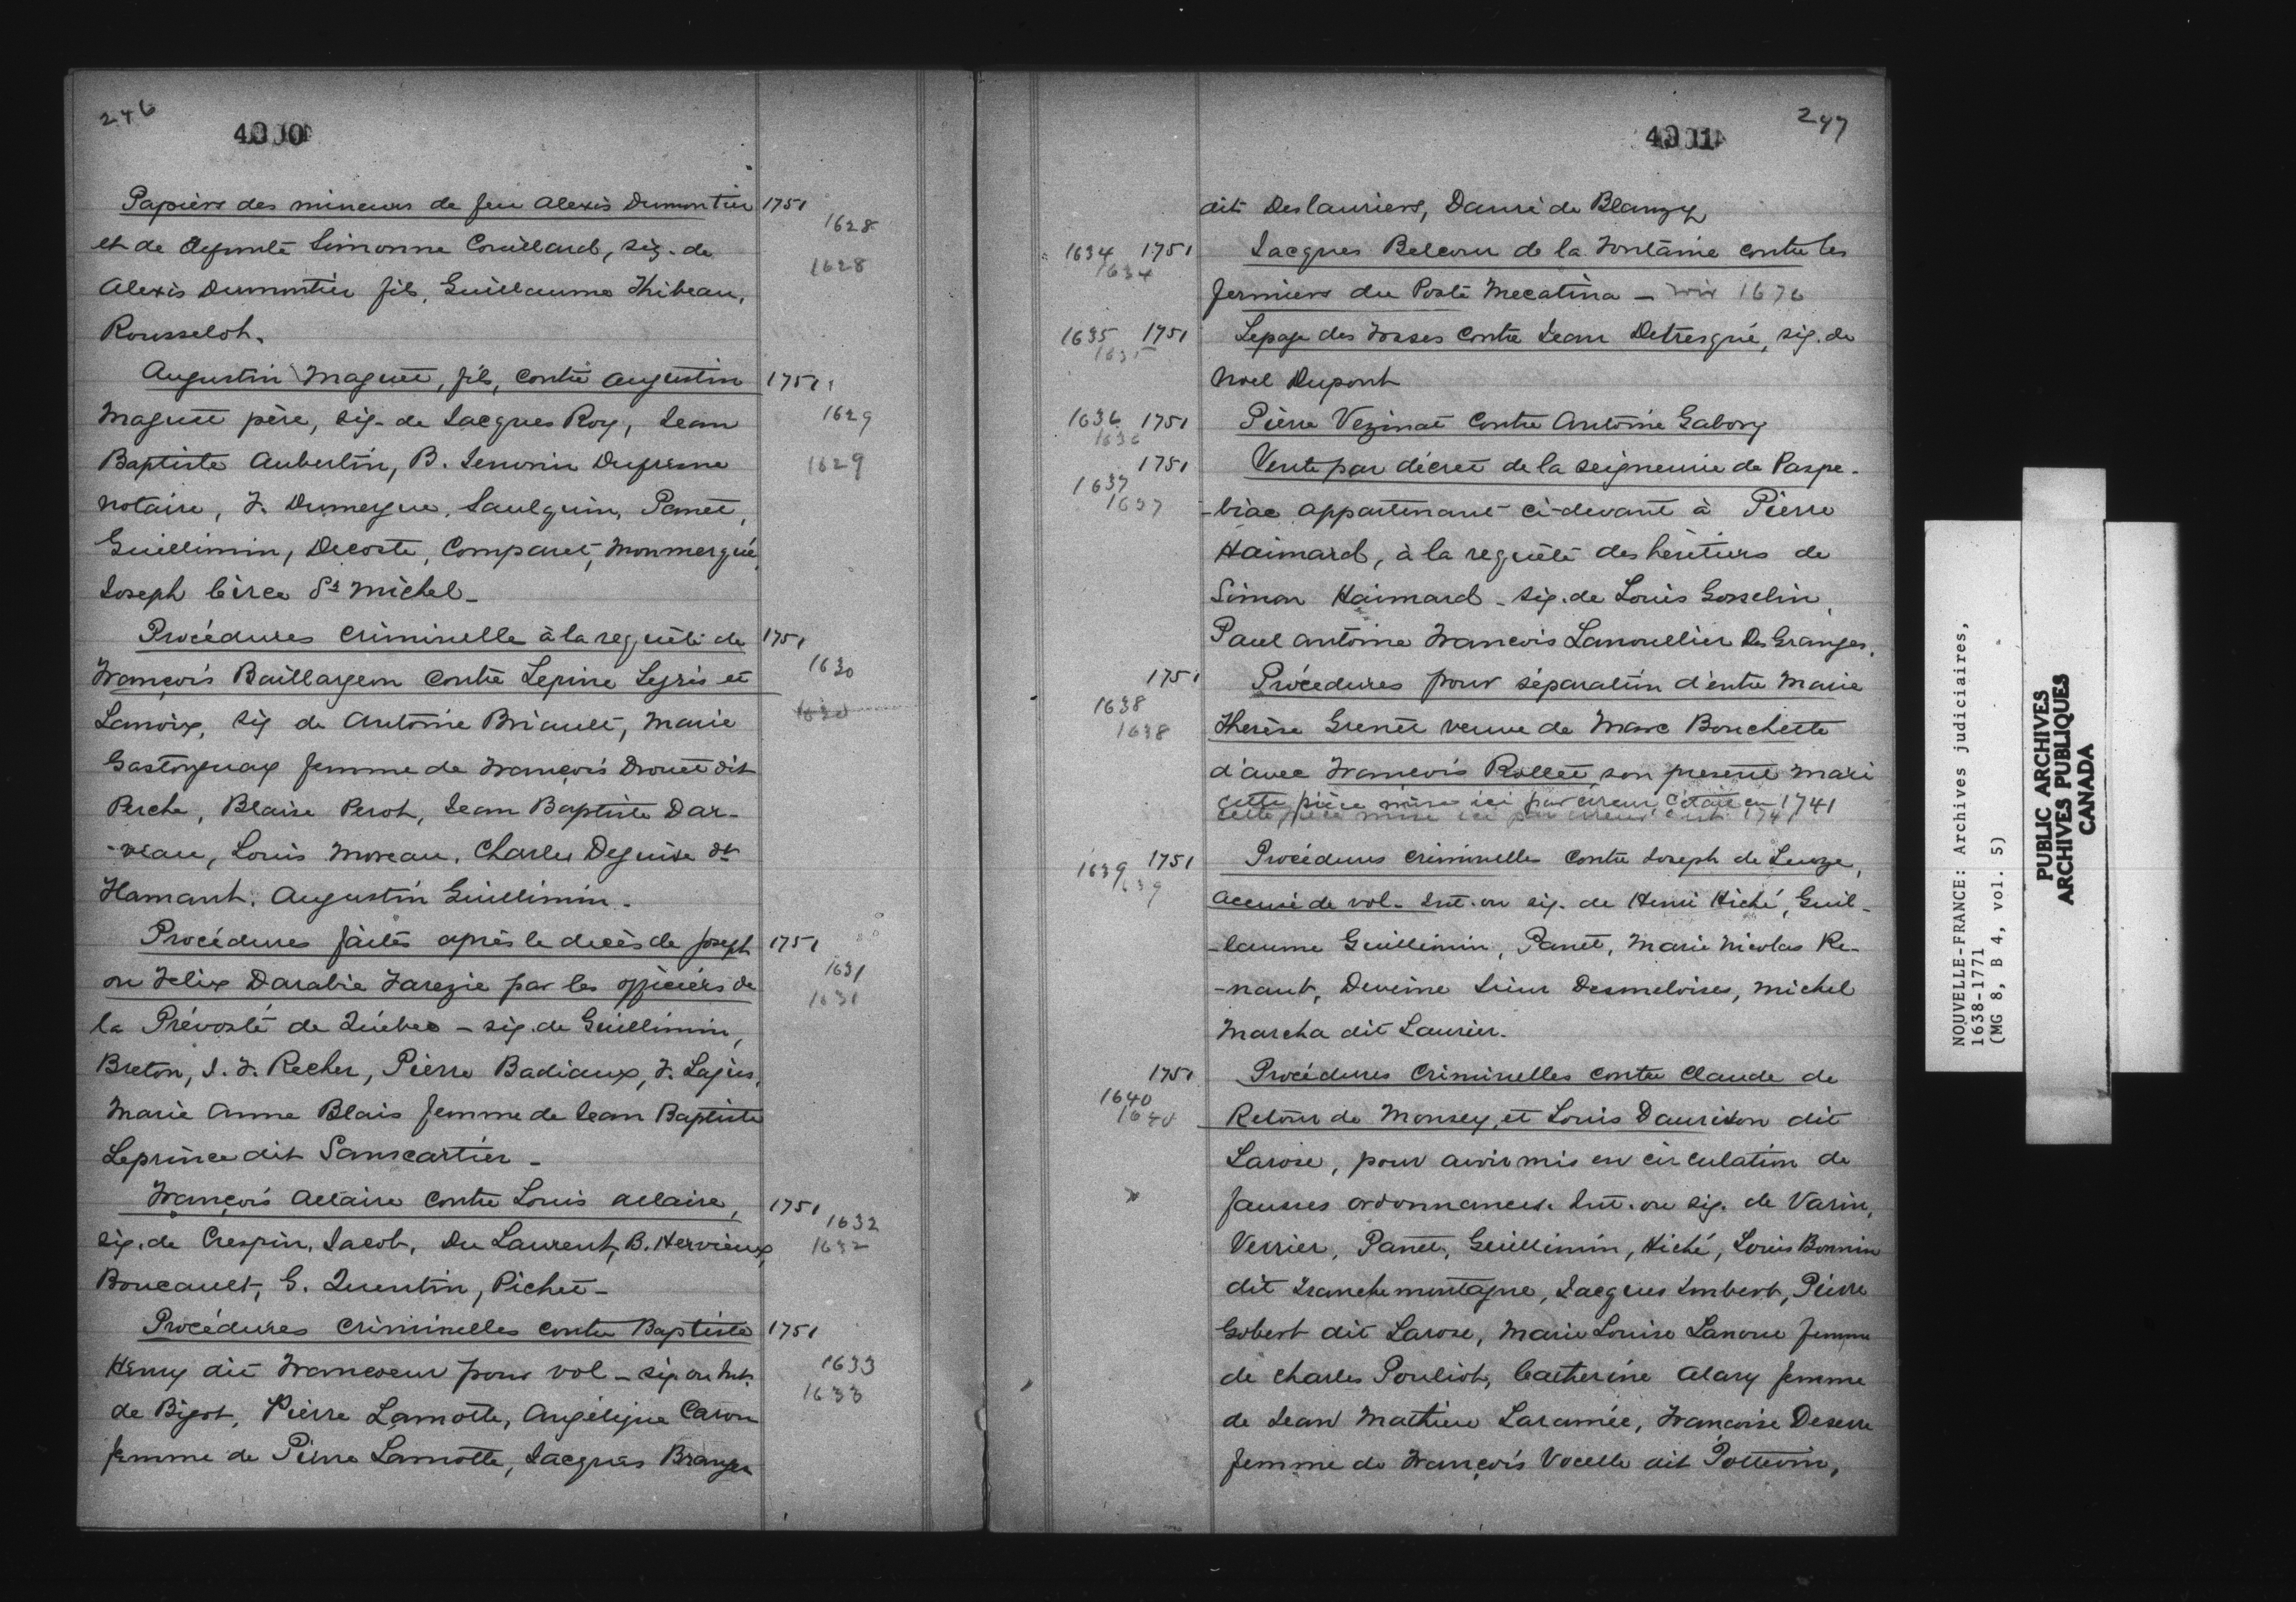 246
4000
Papiers des mineurs de feu Alexis Dumontier 1751
1628
et de defunte Simonne Couillard, sig. de
1628
Alexis Dumontier fils, Guillaume Thibeau,
Rousselot.
Augustin Maguet, fils, contre Augustin 1751
Maguet père, sig. de Jacques Roy, Jean 1629
Baptiste Aubertin, B. Dufresne 1629
notaire, F. Dumergue, Saulquin, Panet,
Guillimin, Decoste, Comparet, Monmerqué,
Joseph Circe St Michel_
Procédures criminelle à la requête de 1751
1630
François Baillargeon contre Lepine Legris et
1630
Lanoix, sig de Antoine Briault, Marie
Gastonguay femme de François Drouet dit
Perche, Blaise Perot, Jean Baptiste Dar-
-veau, Louis Moreau, Charles Deguise dt
Flamant, Augustin Guillimin.
Procédures faites après le decès de Joseph 1751
1631
ou Felix Darabie Farezie par les officiers de
1631
la Prévosté de Québec - sig. de Guillimin,
Breton, J. F. Recher, Pierre Badiaux, F. Lajus,
Marie Anne Blais femme de Jean Baptiste
Leprince dit Sanscartier_
François Allaire contre Louis Allaire, 1751
1632
sig. de Crespin, Jacob, Du Laurent, B. Hervieux, 1632
Boucault, G. Quentin, Pichet_
Procédures criminelles contre Baptiste 1751
1633
Henry dit Francoeur pour vol_ sig ou Int.
1633
de Bigot, Pierre Lamotte, Angélique Caron
femme de Pierre Lamotte, Jacques Branger
247
4001
dit Deslauriers, Dauré de Blanzy
1634 1751 Jacques Belcour de la Fontaine contre les
1634
fermiers du Poste Mecatina - voir 1676
1635 1751 Lepage des Fosses contre Jean Detresqué, sig. de
1635
Noel Dupont
1636 1751 Pierre Vezinat contre Antoine Gabory
1636
1751 Vente par décret de la seigneurie de Paspe-
1637
1637 -biac appartenant ci-devant à Pierre
Haimard, à la requête des héritiers de
Simon Haimard - sig. de Louis Gosselin,
Paul Antoine François Lanoullier Des Granges.
1751 Procédures pour séparation d'entre Marie
1638
1638 Therèse Grenet veuve de Marc Bouchette
d'avec François Rollet son présent mari
cette pièce mise ici par erreur, c'était en 1741
cette pièce mise ici par erreur c'est 1741
1639 1751 Procédures criminelles contre Joseph de Leuze,
1639
accusé de vol. Int. ou sig. de Henri Hiché, Guil-
-laume Guillimin, Panet, Marie Nicolas Re-
-naut, Devime Sieur Desmeloises, Michel
Marcha dit Laurier.
1751 Procédures Criminelles contre Claude de
1640
1640 Retour de Monsey, et Louis Daurison dit
Larose, pour avoir mis en circulation de
fausses ordonnances. Int. ou sig. de Varin,
Verrier, Panet, Guillimin, Hiché, Louis Bonnin
dit Tranchemontagne, Jacques Imbert, Pierre
Gobert dit Larose, Marie Louise Lanoue femme
de Charles Pouliot, Catherine Alary femme
de Jean Mathieu Laramée, Françoise Deserre
femme de François Vocelle dit Pottevin,
NOUVELLE-FRANCE: Archives judiciaires,
1638-1771
(MG 8, B 4, vol. 5)
PUBLIC ARCHIVES
ARCHIVES PUBLIQUES
CANADA